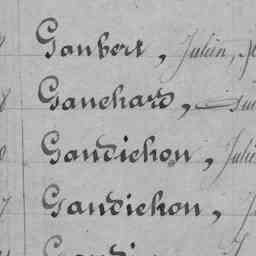 Gaubert, Julien,
Gauchard,
Gaudichon, Juli
Gaudichon, J
Gaudi